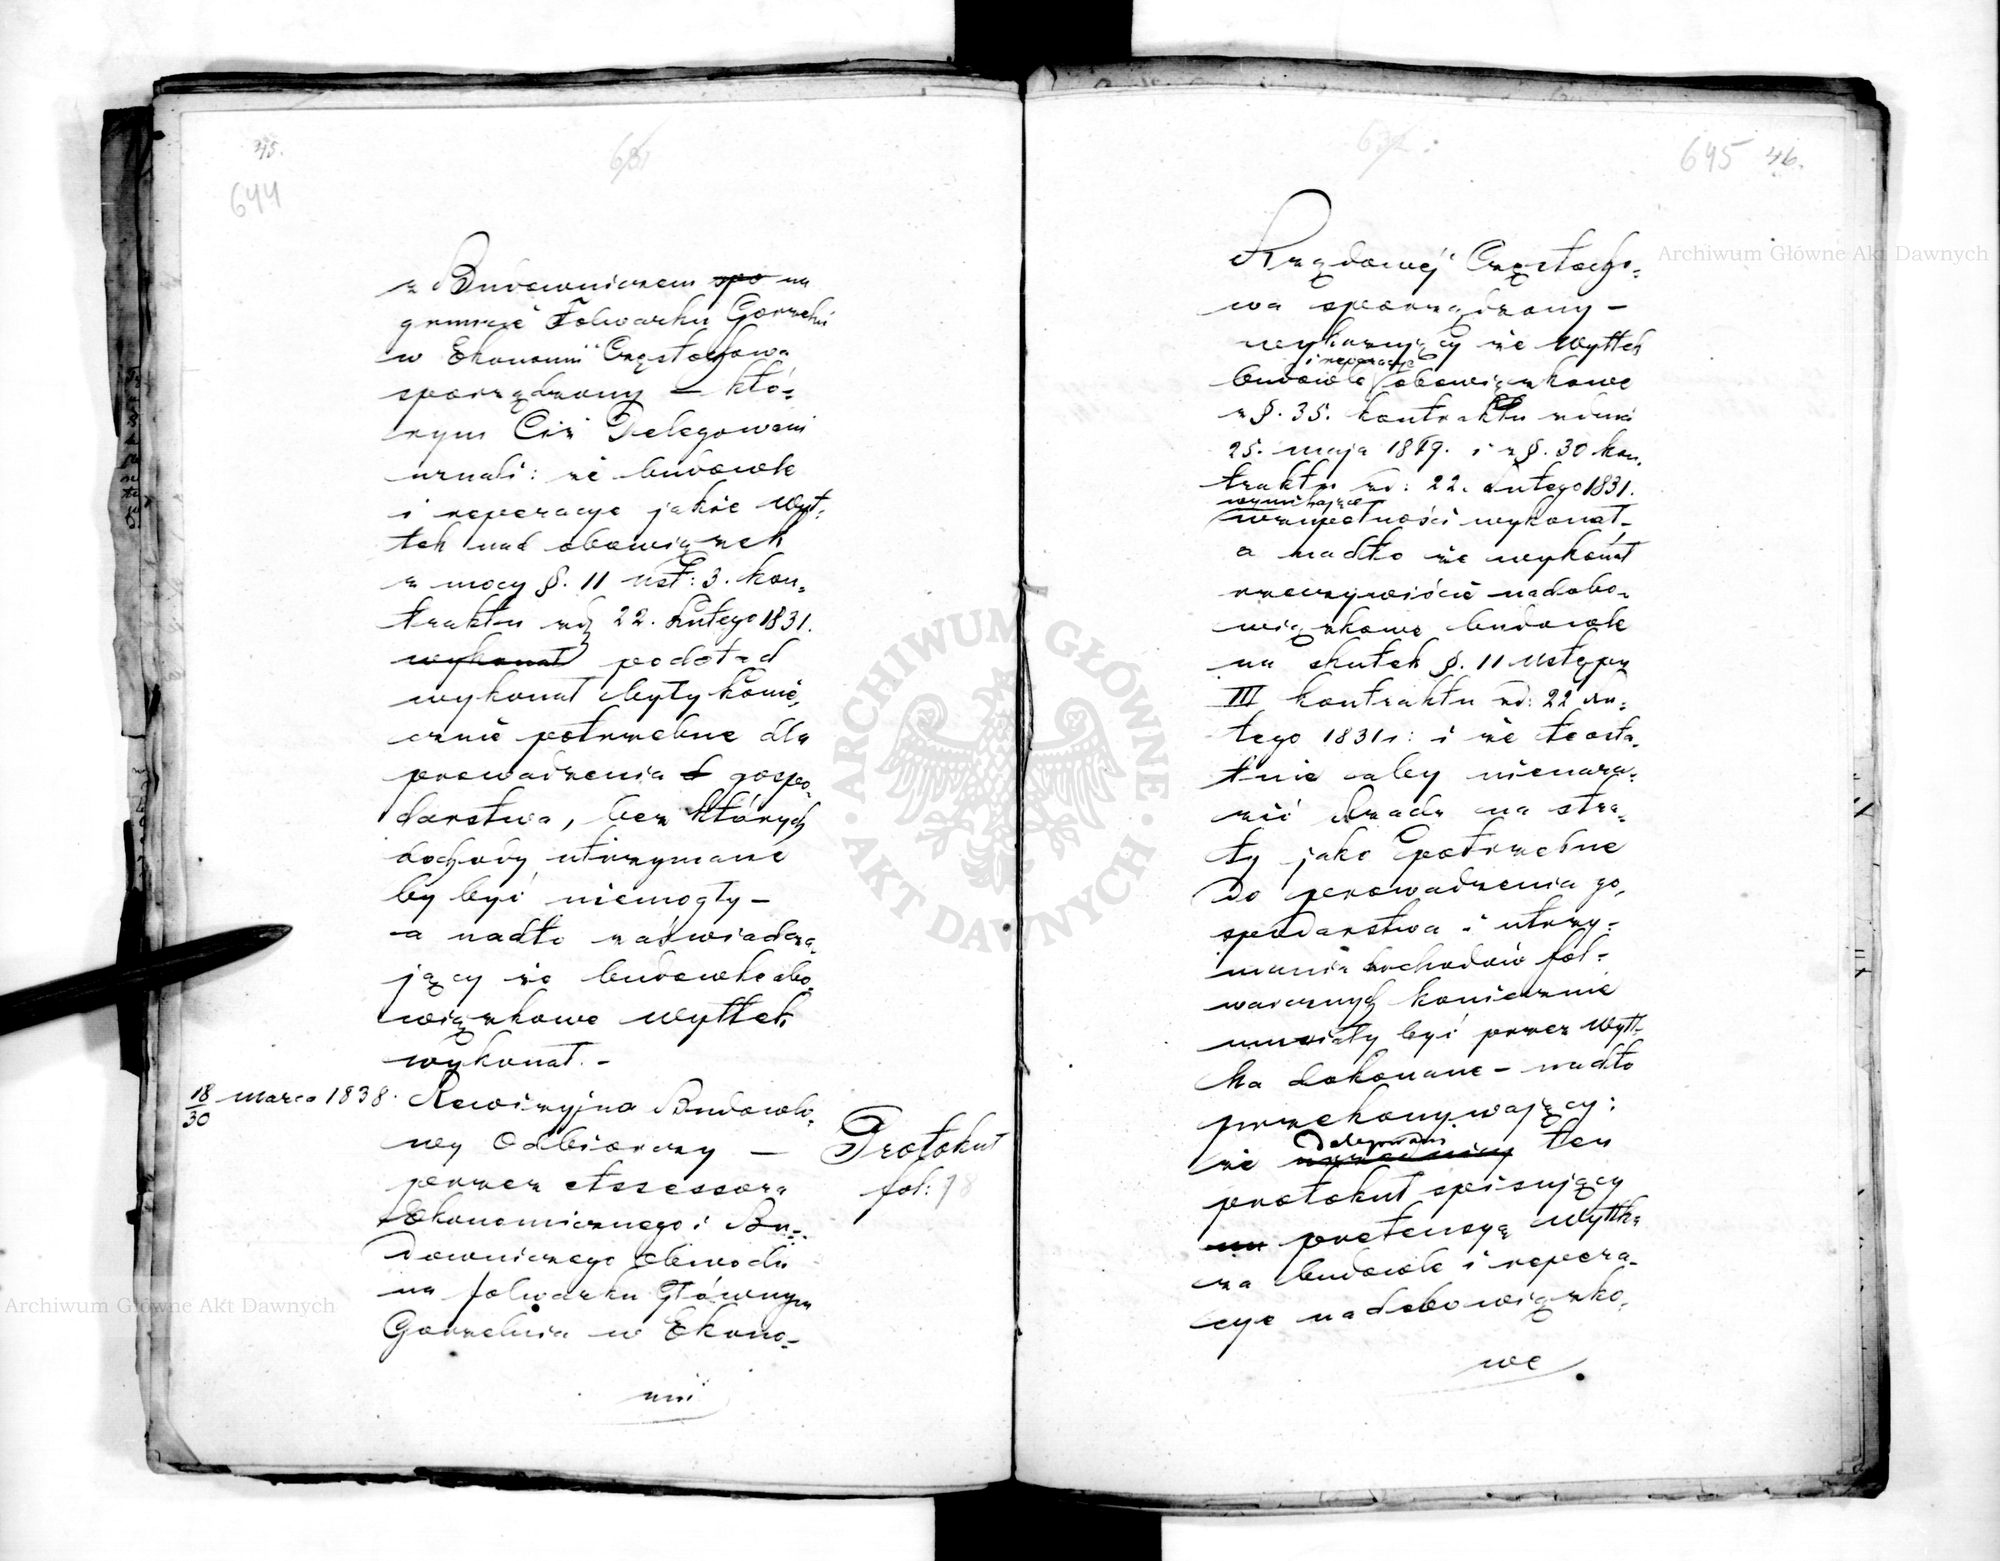 45.
644
631
z Budowniczem spo na
gruncie Folwarku Gorzelni
w Ekonomii Częstochowa
sporządzony – któ=
rym Ciż Delegowani
uznali: że budowle
i reperacye jakie Wyt=
tek nad obowiązek
z mocy §. 11 ust: 3. kon=
traktu zd 22. Lutego 1831.
wykonał podotąd
wykonał były konie=
cznie potrzebne dla
prowadzenia gospo=
darstwa, bez których
dochody utrzymane
by być niemogły –
a nadto zaświadcza=
jący że budowle obo=
wiązkowe Wyttek
wykonał. –
18/30 marca 1838. Rewizyjno Budowlo=
wy Odbiorczy –
przez Assessora
Ekonomicznego i Bu=
downiczego Obwodu
na folwarku Głównym
Gorzelnia w Ekono=
mii
Protokuł
fol: 98
632
645 46.
Rządowéj Częstocho=
wa sporządzony –
wykazujący że Wyttek
i reperacye
budowle obowiązkowe
z §. 35. kontraktu zdnia
25. maja 1819. i z §. 30 kon=
traktu zd: 22. Lutego 1831.
wynikające
wzupełności wykonał –
a nadto że wykonał
rzeczywiście nadobo=
wiązkowe budowle
na skutek §. 11 Ustępu
III kontraktu zd: 22 Lu=
tego 1831 r: i że te osta=
tnie aby nienara=
zić Rządu na stra=
ty jako potrzebne
do prowadzenia go=
spodarstwa i utrzy=
mania dochodów fol=
warcznych koniecznie
musiały być przez Wytt=
ka dokonane – nadto
przekonywający:
Delegowani
że urzędnicy ten
protokuł spisujący
pretensyą Wyttka
za budowle i repera=
cye nadobowiązko=
we
ARCHIWUM GŁÓWNE · AKT DAWNYCH ·
Archiwum Główne Akt Dawnych
Archiwum Główne Akt Dawnych